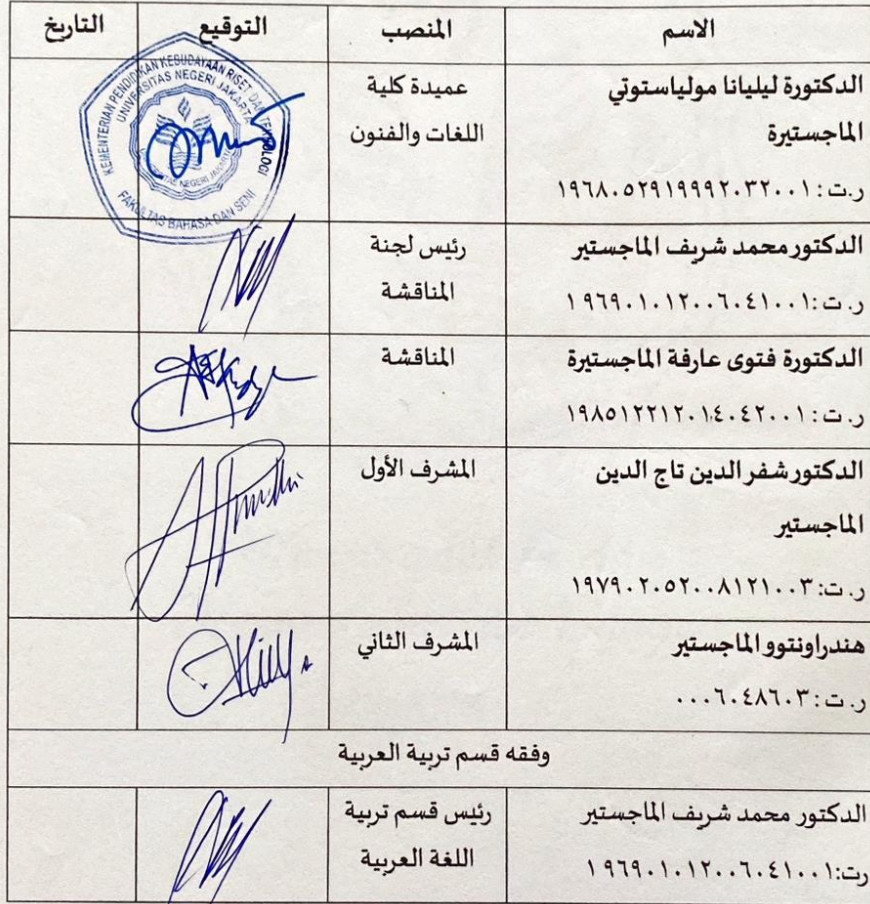 الاسم المنصب التوقيع التاريخ
الدكتورة ليليانا مولياستوتي
الماجستيرة
ر.ت: ١٩٦٨٠٥٢٩١٩٩٩٢٠٣٢٠٠١
عميدة كلية
اللغات والفنون
KEMENTERIAN PENDIDIKAN KEBUDAYAAN RISET DAN TEKNOLOGI
UNIVERSITAS NEGERI JAKARTA
FAKULTAS BAHASA DAN SENI
الدكتور محمد شريف الماجستير
ر. ت :١٩٦٩٠١٠١٢٠٠٦٠٤١٠٠١
رئيس لجنة
المناقشة
الدكتورة فتوى عارفة الماجستيرة
ر. ت : ١٩٨٥١٢٢١٢٠١٤٠٤٢٠٠١
المناقشة
الدكتور شفر الدين تاج الدين
الماجستير
ر. ت: ١٩٧٩٠٢٠٥٢٠٠٨١٢١٠٠٣
المشرف الأول
هندراونتوو الماجستير
ر. ت: ٠٠٠٦٠٤٨٦٠٣
المشرف الثاني
وفقه قسم تربية العربية
الدكتور محمد شريف الماجستير
رت:١٩٦٩٠١٠١٢٠٠٦٠٤١٠٠١
رئيس قسم تربية
اللغة العربية